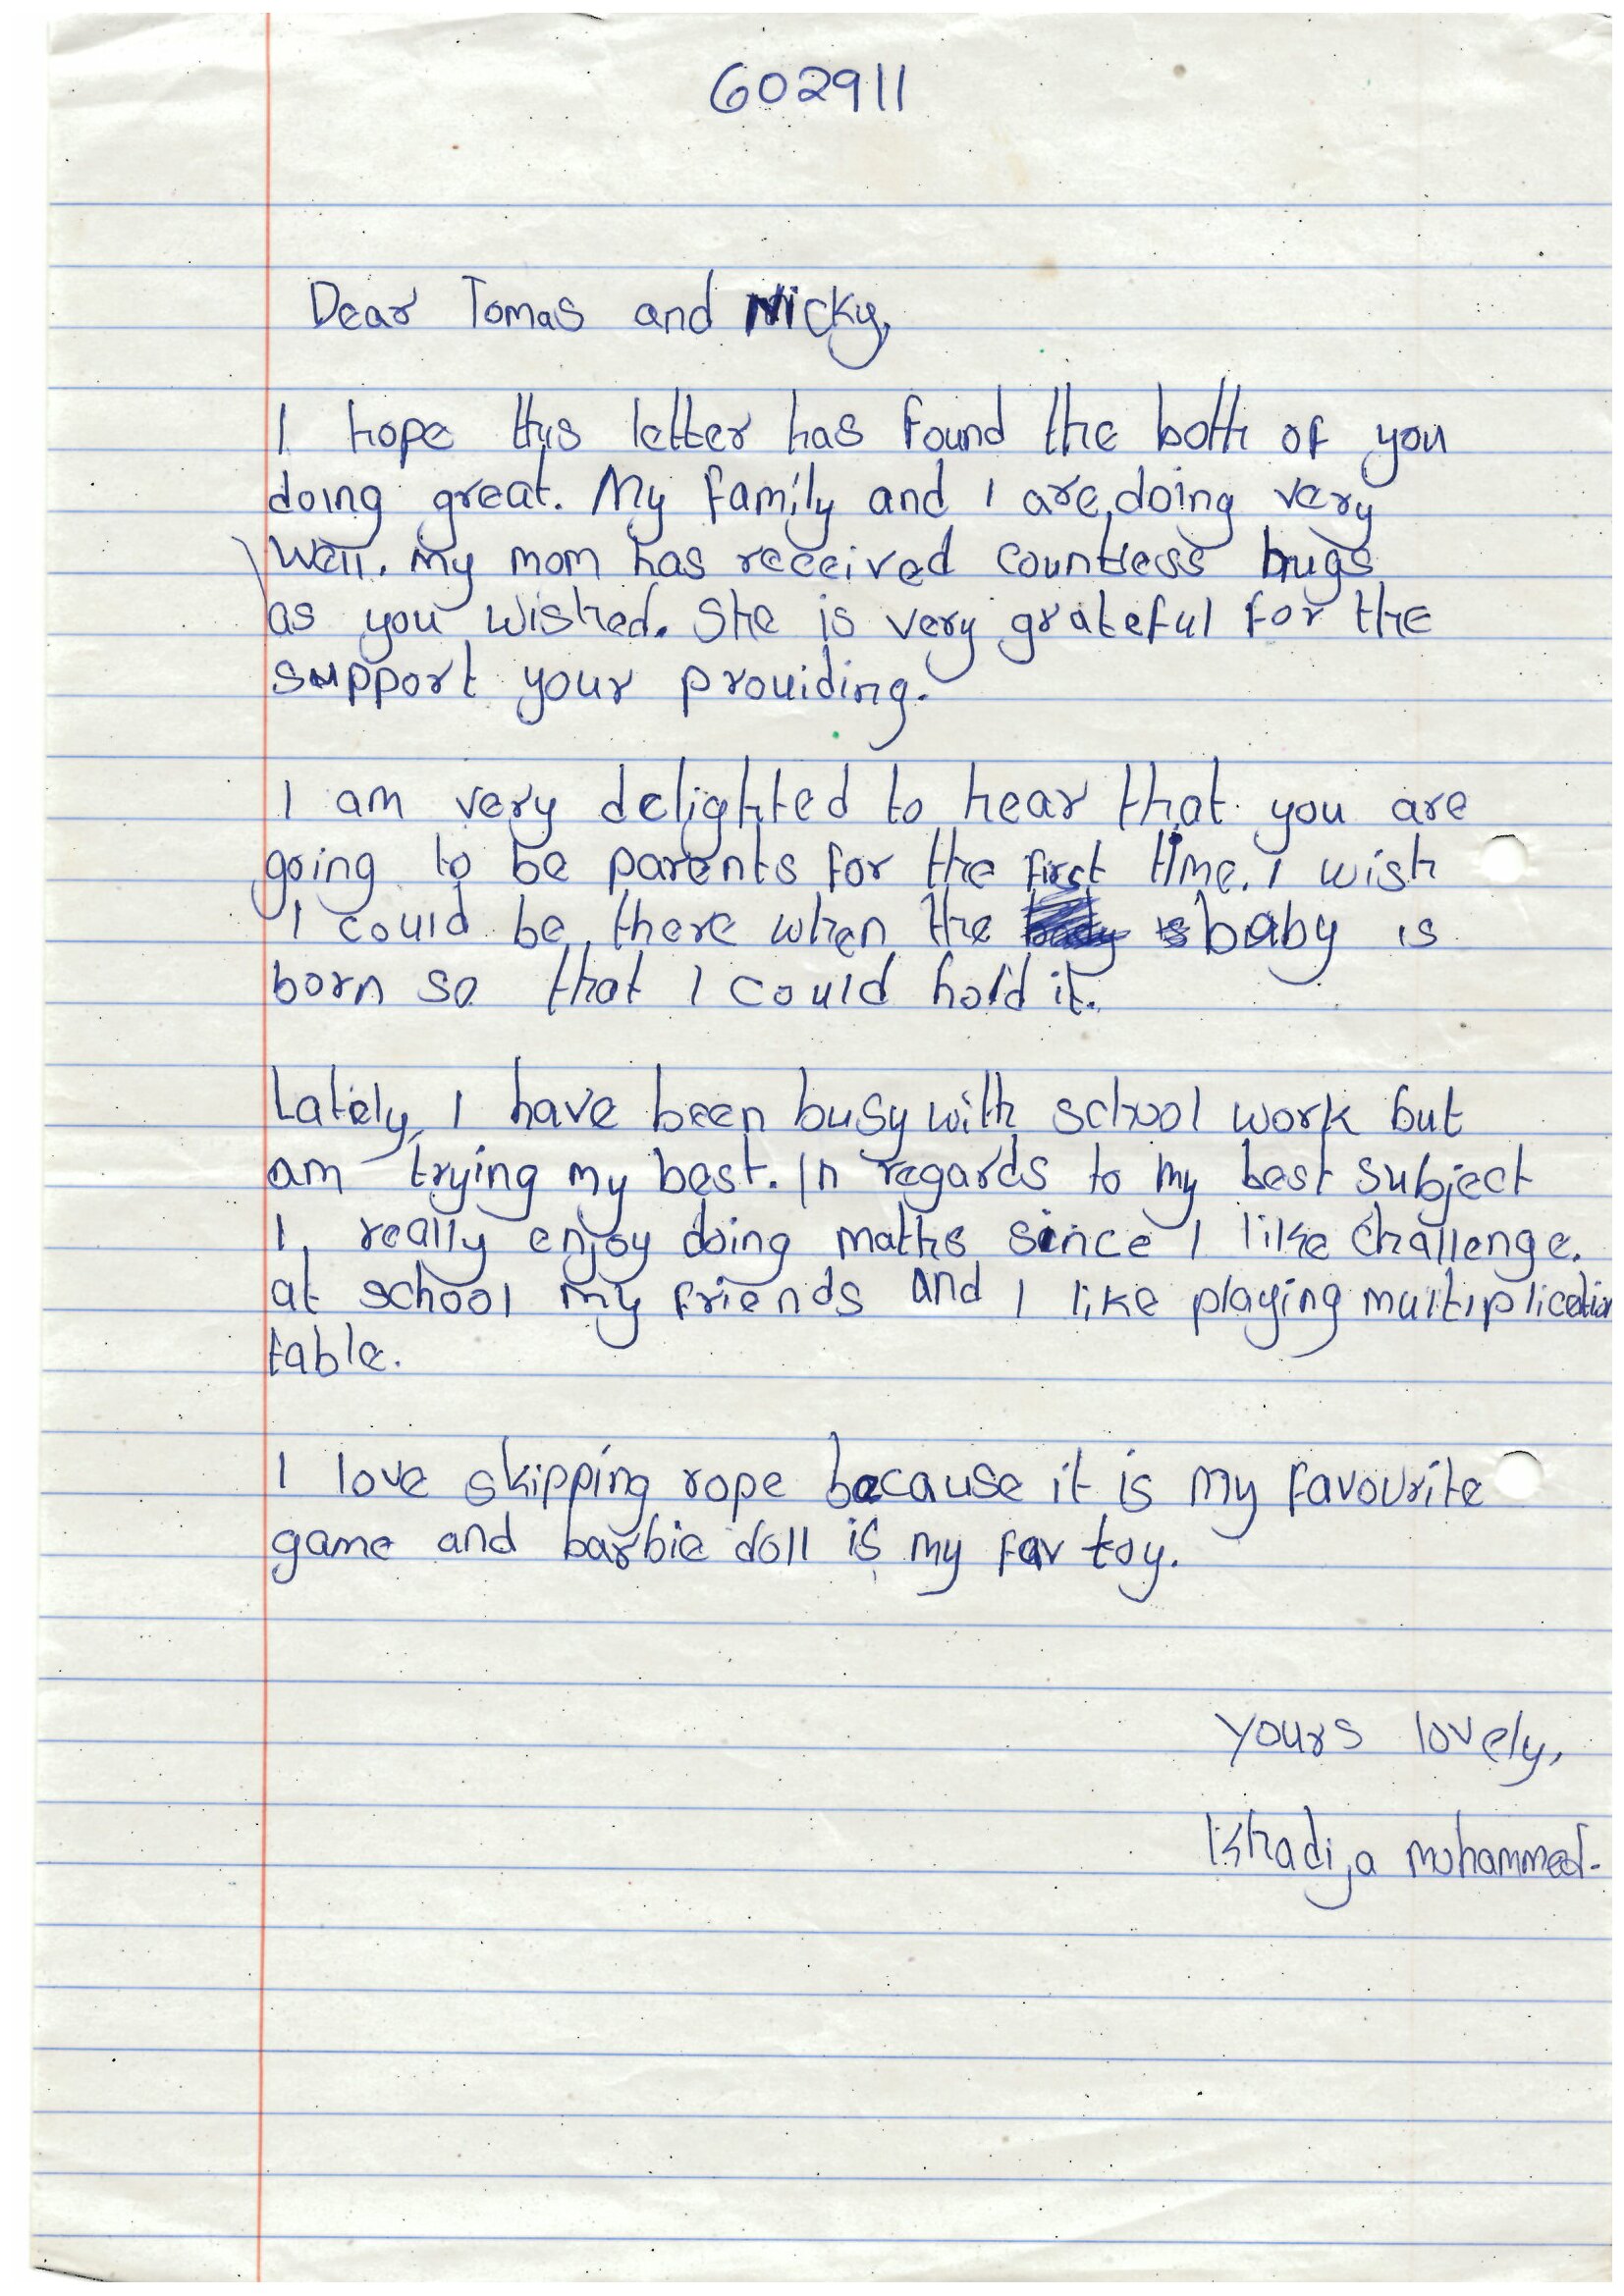 602911
Dear Tomas and Nicky,
I hope this letter has found the both of you
doing great. My family and I are doing very
well. My mom has received countless hugs
as you wished. She is very grateful for the
support your prouiding.
I am very delighted to hear that you are
going to be parents for the first time. I wish
I could be there when the baby is
born so that I could hold it.
Lately, I have been busy with school work but
am trying my best. In regards to my best subject
I really enjoy doing maths since I like challenge.
at school my friends and I like playing multiplication
table.
I love skipping rope because it is my favourite
game and barbie doll is my fav toy.
Yours lovely,
Khadija mohammed.